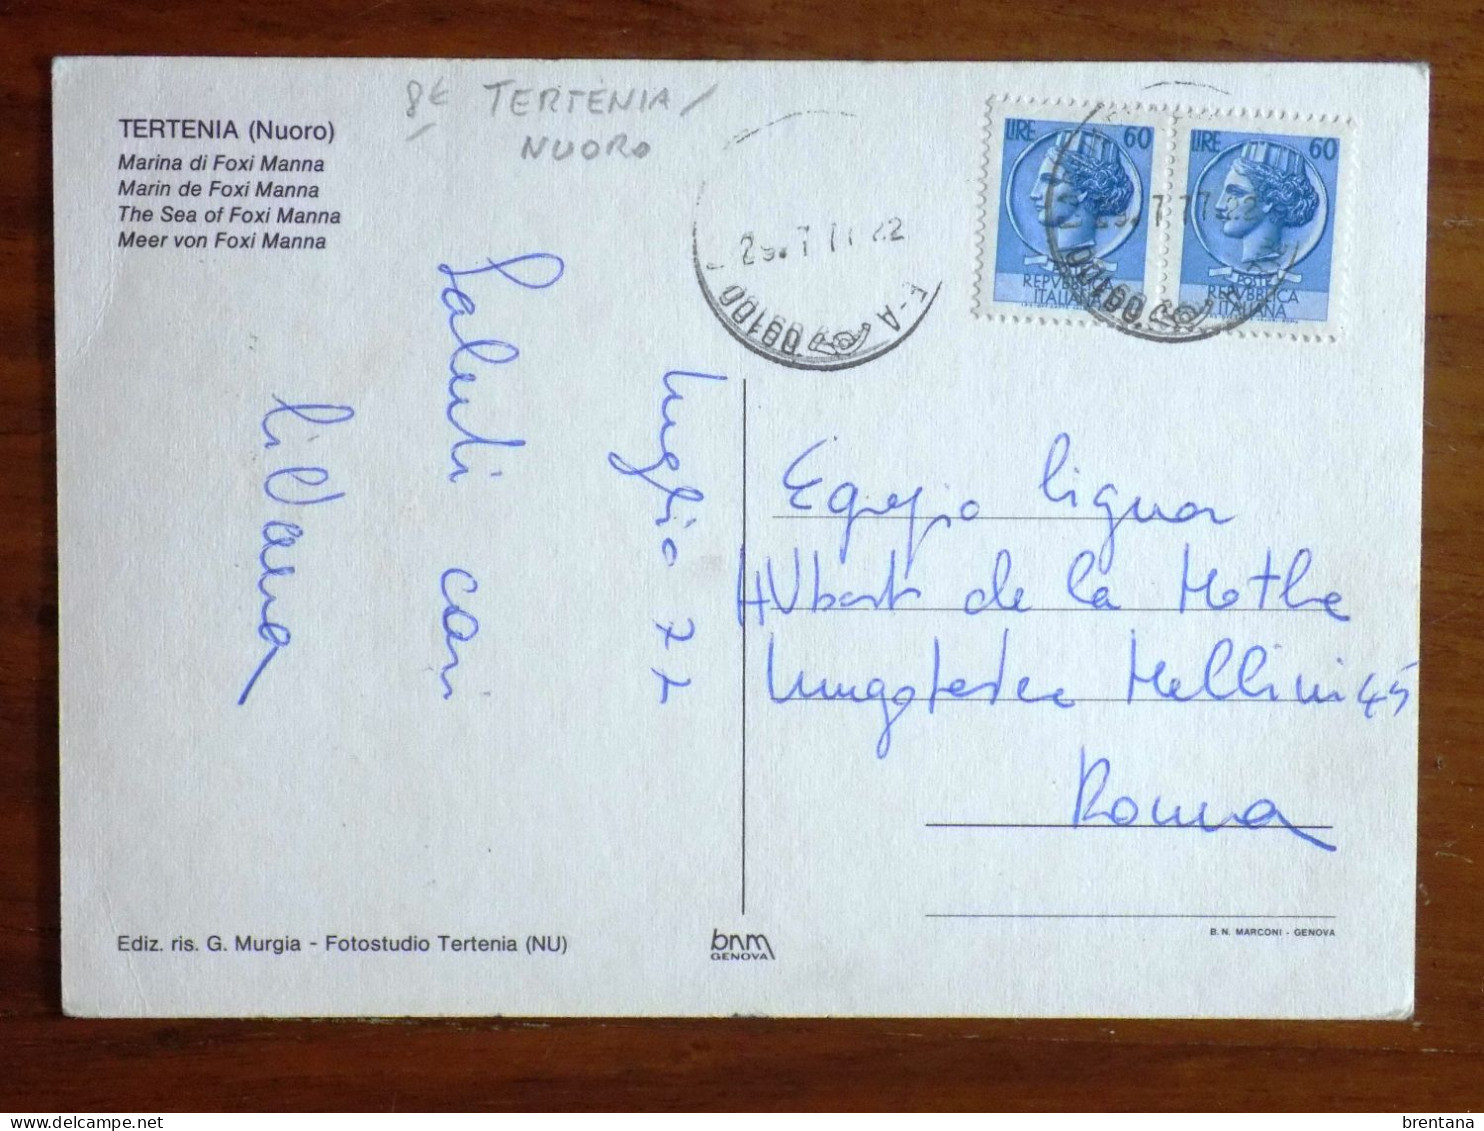 8€ TERTENIA/
NUORO
TERTENIA (Nuoro)
Marina di Foxi Manna
Marin de Foxi Manna
The Sea of Foxi Manna
Meer von Foxi Manna
luglio 77
Saluti cari
lidana
LIRE 60
REPVBBLICA
ITALIANA
LIRE 60
POSTE
REPVBBLICA
ITALIANA
29.7 77 22
00100
29.7 77 22
00100
Egregio Signor
HUbert de la Mothe
Lungotevere Mellini 45
Roma
Ediz. ris. G. Murgia - Fotostudio Tertenia (NU)
bnm
GENOVA
B. N. MARCONI - GENOVA
brentana